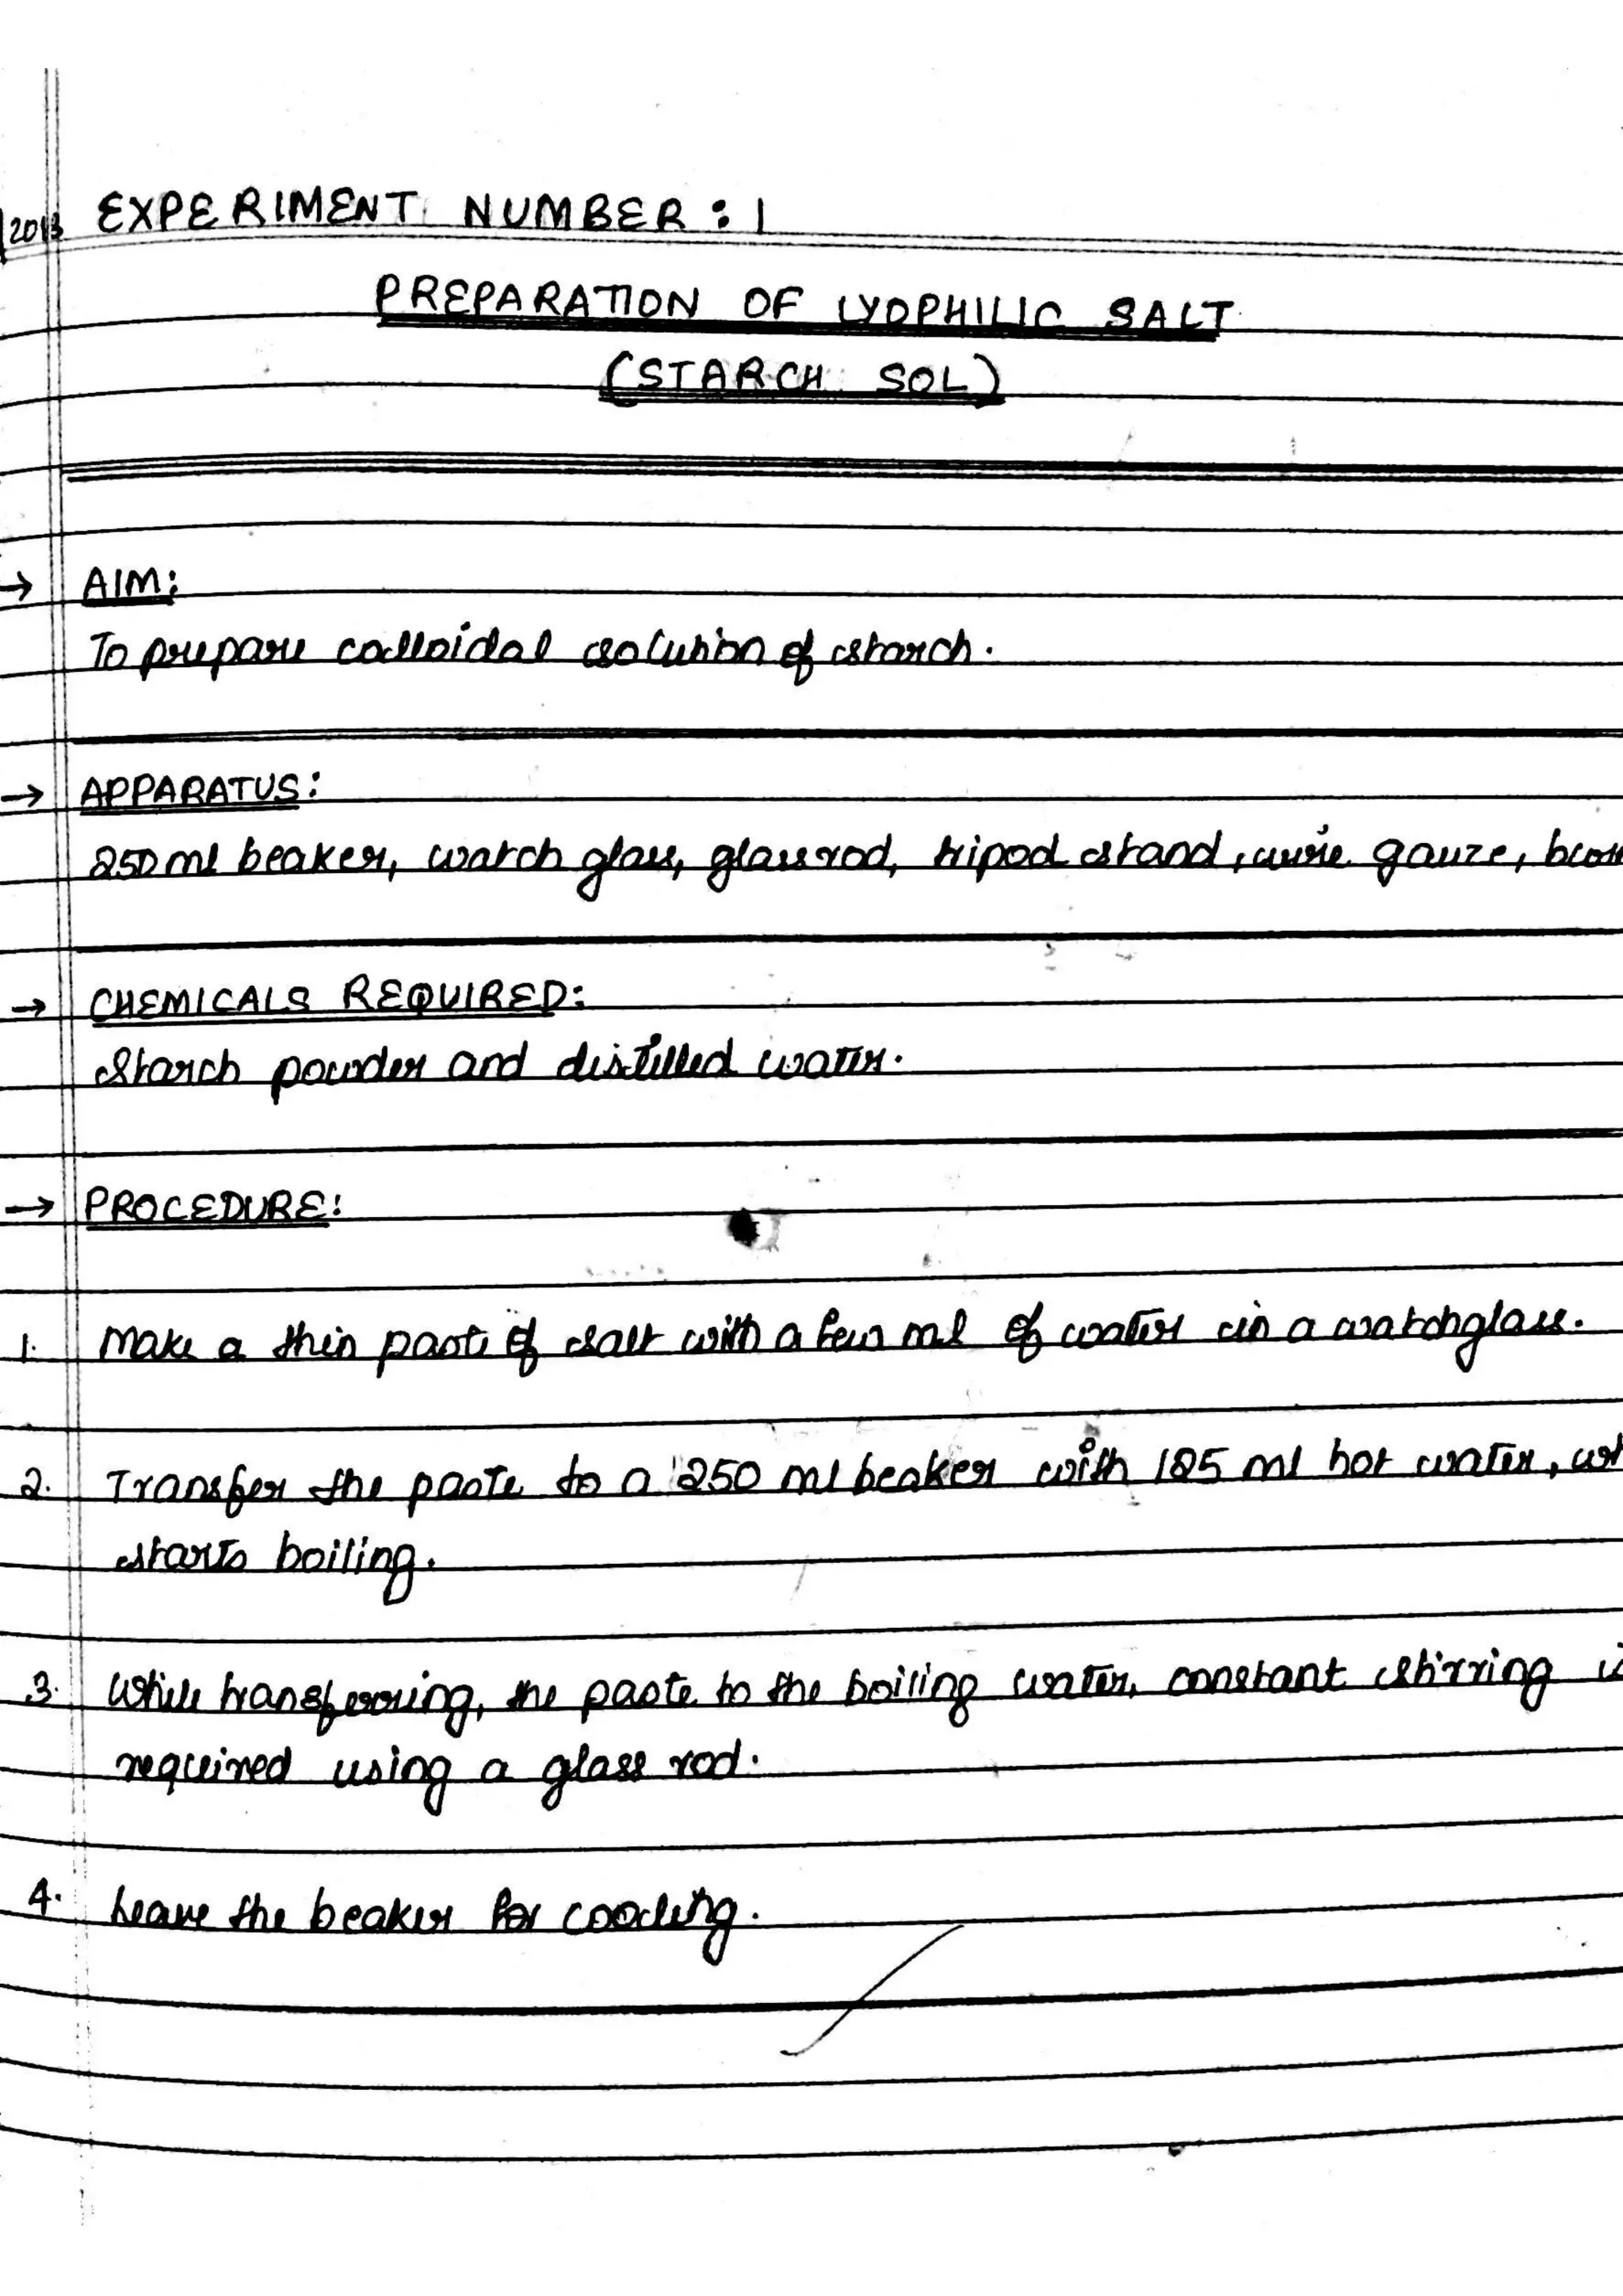 2013 EXPERIMENT NUMBER : 1
PREPARATION OF LYOPHILIC SALT
(STARCH SOL)
→ AIM:
To prepare colloidal solution of starch.
→ APPARATUS:
250 ml beaker, watch glass, glass rod, tripod stand, wire gauze,
→ CHEMICALS REQUIRED:
Starch powder and distilled water.
→ PROCEDURE:
1. Make a thin paste of salt with a few ml of water in a watchglass.
2. Transfer the paste to a 250 ml beaker with 125 ml hot water,
starts boiling.
3. While transferring, the paste to the boiling water, constant stirring
required using a glass rod.
4. Leave the beaker for cooling.